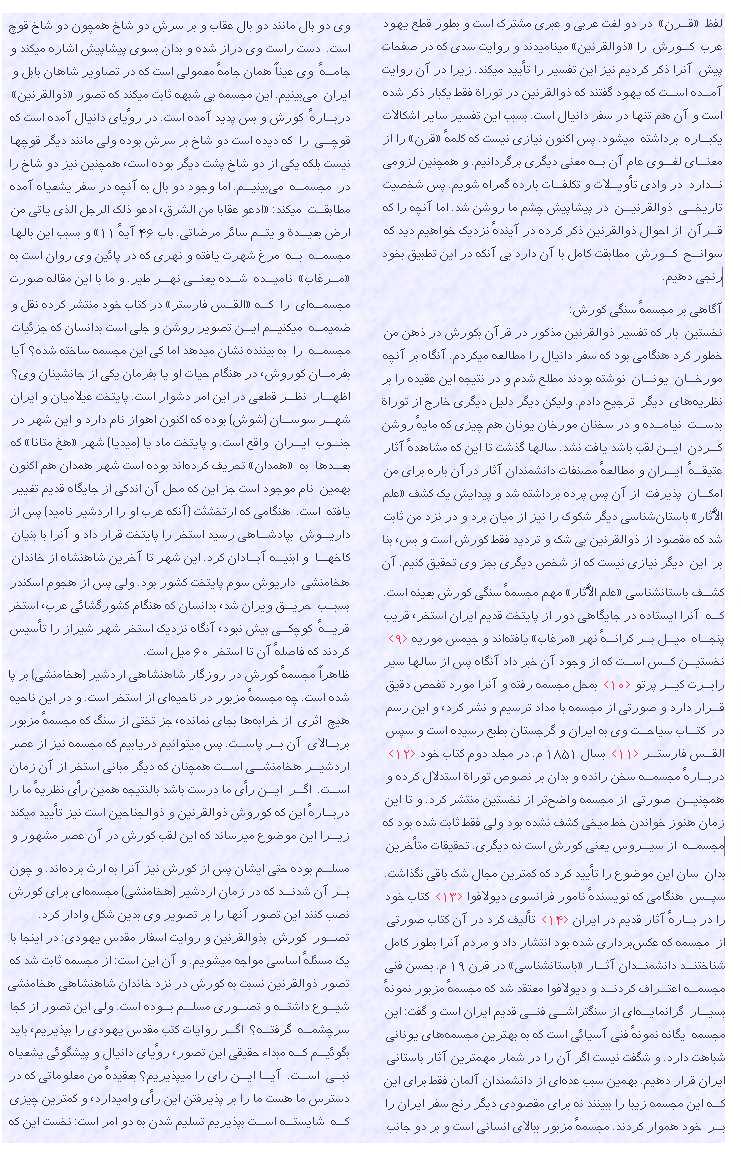 لفظ «قـرن» در دو لغت عربی و عبری مشترک است و بطور قطع یهود
عرب کـورش را «ذوالقرنین» مینامیدند و روایت سدی که در صفحات
پیش آنرا ذکر کردیم نیز این تفسیر را تأیید میکند. زیرا در آن روایت
آمـده اسـت که یهود گفتند که ذوالقرنین در توراة فقط یکبار ذکر شده
است و آن هم تنها در سفر دانیال است. بسبب این تفسیر سایر اشکالات
یکبـاره برداشته میشود. پس اکنون نیازی نیست که کلمهٔ «قرن» را از
معنـای لغـوی عام آن بـه معنی دیگری برگردانیم. و همچنین لزومی
نـدارد در وادی تأویـلات و تکلفـات بارده گمراه شویم. پس شخصیت
تاریخـی ذوالقرنیـن در پیشاپیش چشم ما روشن شد. اما آنچه را که
قـرآن از احوال ذوالقرنین ذکر کرده در آیندهٔ نزدیک خواهیم دید که
سوانـح کـورش مطابقت کامل با آن دارد بی آنکه در این تطبیق بخود
رنجی دهیم.
آگاهی بر مجسمهٔ سنگی کورش:
نخستین بار که تفسیر ذوالقرنین مذکور در قرآن بکورش در ذهن من
خطور کرد هنگامی بود که سفر دانیال را مطالعه میکردم. آنگاه بر آنچه
مورخـان یونـان نوشته بودند مطلع شدم و در نتیجه این عقیده را بر
نظریه‌های دیگر ترجیح دادم. ولیکن دیگر دلیل دیگری خارج از توراة
بدسـت نیامـده و در سخنان مورخان یونان هم چیزی که مایهٔ روشن
کـردن ایـن لقب باشد یافت نشد. سالها گذشت تا این که مشاهدهٔ آثار
عتیقـهٔ ایـران و مطالعهٔ مصنفات دانشمندان آثار درآن باره برای من
امکـان پذیرفت از آن پس پرده برداشته شد و پیدایش یک کشف «علم
الآثار» باستان‌شناسی دیگر شکوک را نیز از میان برد و در نزد من ثابت
شد که مقصود از ذوالقرنین بی شک و تردید فقط کورش است و بس، بنا
بر این دیگر نیازی نیست که از شخص دیگری بجز وی تحقیق کنیم. آن
کشـف باستانشناسی «علم الآثار» مهم مجسمهٔ سنگی کورش بعینه است.
کـه آنرا ایستاده در جایگاهی دور از پایتخت قدیم ایران استخر، قریب
پنجـاه میـل بـر کرانـهٔ نهر «مرغاب» یافته‌اند و جیمس موریه <۹>
نخستیـن کـس اسـت که از وجود آن خبر داد آنگاه پس از سالها سیر
رابـرت کیـر پرتو <۱۰> بمحل مجسمه رفته و آنرا مورد تفحص دقیق
قـرار دارد و صورتی از مجسمه با مداد ترسیم و نشر کرد، و این رسم
در کتـاب سیاحـت وی به ایران و گرجستان بطبع رسیده است و سپس
القـس فارستـر <۱۱> بسال ۱۸۵۱ م. در مجلد دوم کتاب خود <۱۲>
دربـارهٔ مجسمـه سخن رانده و بدان بر نصوص توراة استدلال کرده و
همچنیـن صورتی از مجسمه واضح‌تر از نخستین منتشر کرد. و تا این
زمان هنوز خواندن خط میخی کشف نشده بود ولی فقط ثابت شده بود که
مجسمـه از سیـروس یعنی کورش است نه دیگری. تحقیقات متأخرین
بدان سان این موضوع را تأیید کرد که کمترین مجال شک باقی نگذاشت.
سپـس هنگامی که نویسندهٔ نامور فرانسوی دیولافوا <۱۳> کتاب خود
را در بـارهٔ آثار قدیم در ایران <۱۴> تألیف کرد در آن کتاب صورتی
از مجسمه که عکس‌برداری شده بود انتشار داد و مردم آنرا بطور کامل
شناختنـد دانشمنـدان آثـار «باستانشناسی» در قرن ۱۹ م. بحسن فنی
مجسمـه اعتـراف کردنـد و دیولافوا معتقد شد که مجسمهٔ مزبور نمونهٔ
بسیـار گرانمایـه‌ای از سنگتراشـی فنـی قدیم ایران است و گفت: این
مجسمه یگانه نمونهٔ فنی آسیائی است که به بهترین مجسمه‌های یونانی
شباهت دارد. و شگفت نیست اگر آن را در شمار مهمترین آثار باستانی
ایران قرار دهیم. بهمین سبب عده‌ای از دانشمندان آلمان فقط برای این
کـه این مجسمه زیبا را ببینند نه برای مقصودی دیگر رنج سفر ایران را
بـر خود هموار کردند. مجسمهٔ مزبور ببالای انسانی است و بر دو جانب
وی دو بال مانند دو بال عقاب و بر سرش دو شاخ همچون دو شاخ قوچ
است. دست راست وی دراز شده و بدان بسوی پیشاپیش اشاره میکند و
جامـهٔ وی عیناً همان جامهٔ معمولی است که در تصاویر شاهان بابل و
ایران می‌بینیم. این مجسمه بی شبهه ثابت میکند که تصور «ذوالقرنین»
دربـارهٔ کورش و بس پدید آمده است. در رؤیای دانیال آمده است که
قوچـی را که دیده است دو شاخ بر سرش بوده ولی مانند دیگر قوچها
نیست بلکه یکی از دو شاخ پشت دیگر بوده است، همچنین نیز دو شاخ را
در مجسمـه می‌بینیـم. اما وجود دو بال به آنچه در سفر یشعیاه آمده
مطابقـت میکند: «ادعو عقابا من الشرق، ادعو ذلک الرجل الذی یاتی من
ارض بعیـدة و یتـم سائر مرضاتی. باب ۴۶ آیهٔ ۱۱» و بسبب این بالها
مجسمـه بـه مرغ شهرت یافته و نهری که در پائین وی روان است به
«مـرغاب» نامیـده شـده یعنـی نهـر طیر. و ما با این مقاله صورت
مجسمـه‌ای را کـه «القـس فارستر» در کتاب خود منتشر کرده نقل و
ضمیمـه میکنیـم ایـن تصویر روشن و جلی است بدانسان که جزئیات
مجسمـه را به بیننده نشان میدهد اما کی این مجسمه ساخته شده؟ آیا
بفرمـان کوروش، در هنگام حیات او یا بفرمان یکی از جانشینان وی؟
اظهـار نظـر قطعی در این امر دشوار است. پایتخت عیلامیان و ایران
شهـر سوسـان (شوش) بوده که اکنون اهواز نام دارد و این شهر در
جنـوب ایـران واقع است. و پایتخت ماد یا (میدیا) شهر «هغ متانا» که
بعـدها به «همدان» تحریف کرده‌اند بوده است شهر همدان هم اکنون
بهمین نام موجود است جز این که محل آن اندکی از جایگاه قدیم تغییر
یافته است. هنگامی که ارتخشثت (آنکه عرب او را اردشیر نامید) پس از
داریـوش بپادشـاهی رسید استخر را پایتخت قرار داد و آنرا با بنیان
کاخهـا و ابنیـه آبـادان کرد. این شهر تا آخرین شاهنشاه از خاندان
هخامنشی داریوش سوم پایتخت کشور بود. ولی پس از هجوم اسکندر
بسبـب حریـق ویران شد، بدانسان که هنگام کشورگشائی عرب، استخر
قریـهٔ کوچکـی بیش نبود، آنگاه نزدیک استخر شهر شیراز را تأسیس
کردند که فاصلهٔ آن تا استخر ۶۰ میل است.
ظاهراً مجسمهٔ کورش در روزگار شاهنشاهی اردشیر (هخامنشی) بر پا
شده است. چه مجسمهٔ مزبور در ناحیه‌ای از استخر است. و در این ناحیه
هیچ اثری از خرابه‌ها بجای نمانده، جز تختی از سنگ که مجسمهٔ مزبور
بربـالای آن بـر پاسـت. پس میتوانیم دریابیم که مجسمه نیز از عصر
اردشیـر هخامنشـی اسـت همچنان که دیگر مبانی استخر از آن زمان
اسـت. اگـر ایـن رأی ما درست باشد بالنتیجه همین رأی نظریهٔ ما را
دربـارهٔ این که کوروش ذوالقرنین و ذوالجناحین است نیز تأیید میکند
زیـرا این موضوع میرساند که این لقب کورش در آن عصر مشهور و
مسلـم بوده حتی ایشان پس از کورش نیز آنرا به ارث برده‌اند. و چون
بـر آن شدنـد که در زمان اردشیر (هخامنشی) مجسمه‌ای برای کورش
نصب کنند این تصور آنها را بر تصویر وی بدین شکل وادار کرد.
تصـور کورش بذوالقرنین و روایت اسفار مقدس یهودی: در اینجا با
یک مسئلهٔ اساسی مواجه میشویم. و آن این است: از مجسمه ثابت شد که
تصور ذوالقرنین نسبت به کورش در نزد خاندان شاهنشاهی هخامنشی
شیـوع داشتـه و تصـوری مسلـم بـوده است. ولی این تصور از کجا
سرچشمـه گرفتـه؟ اگـر روایات کتب مقدس یهودی را بپذیریم، باید
بگوئیـم کـه مبداء حقیقی این تصور، رؤیای دانیال و پیشگوئی یشعیاه
نبـی اسـت. آیـا ایـن رای را میپذیریم؟ بعقیدهٔ من معلوماتی که در
دسترس ما هست ما را بر پذیرفتن این رأی وامیدارد، و کمترین چیزی
کـه شایستـه اسـت بپذیریم تسلیم شدن به دو امر است: نخست این که